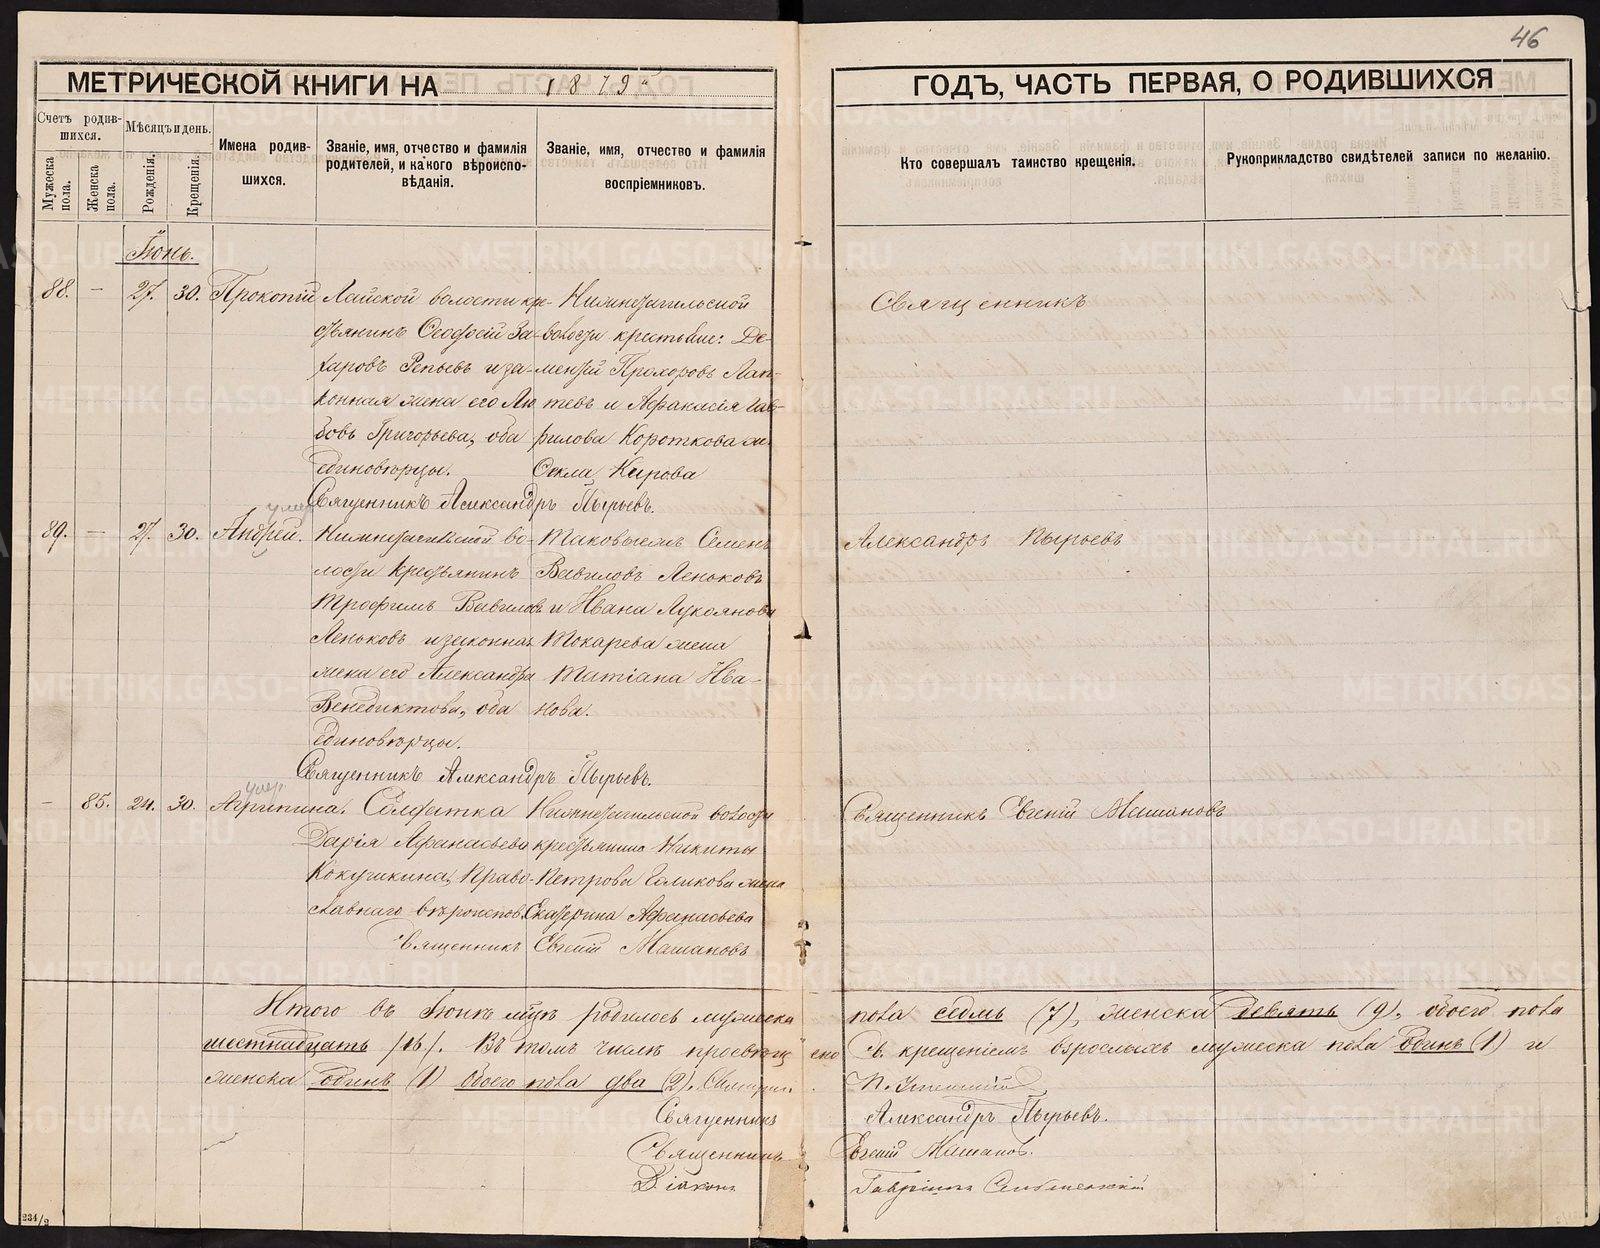 46
МЕТРИЧЕСКОЙ КНИГИ НА 1879 й
ГОДЪ, ЧАСТЬ ПЕРВАЯ, О РОДИВШИХСЯ
Счетъ родившихся.
Мужеска пола.
Женска пола.
Мѣсяцъ и день.
Рожденія.
Крещенія.
Имена родившихся.
Званіе, имя, отчество и фамилія родителей, и какого вѣроисповѣданія.
Званіе, имя, отчество и фамилія воспріемниковъ.
Кто совершалъ таинство крещенія.
Рукоприкладство свидѣтелей записи по желанію.
Іюнь.
88. — 27. 30. Прокопій
Лайской волости кре-
стьянинъ Ѳеодосій За-
харовъ Репьевъ и за-
конная жена его Лю
бовь Григорьева, оба
единовѣрцы.
Нижнетагильской
волости крестьяне: Де-
ментій Прохоровъ Лап-
тевъ и Афанасія Гав-
рилова Короткова же.
Ѳекла Кирова
Священникъ
Священникъ Александръ Пырьевъ.
89. — 27. 30. Андрей.
умер
Нижнетагильской во-
лости крестьянинъ
Трофимъ Вавиловъ
Леньковъ и законная
жена его Александра
Венедиктова, оба
единовѣрцы.
Таковыежъ Семенъ
Вавиловъ Леньковъ
и Ивана Лукоянова
Токарева жена
Татіана Ива-
нова.
Александръ Пырьевъ
Священникъ Александръ Пырьевъ.
— 85. 24. 30. Агрипина.
умер
Солдатка
Дарія Афанасьева
Кокушкина, право-
славнаго вѣроиспов.
Нижнетагильской волости
крестьянина Никиты
Петрова Голикова жена
Екатерина Афанасьева
Священникъ Евгеній Машановъ
Священникъ Евгеній Машановъ
Итого въ Іюнѣ мцѣ родилось мужеска пола седмь (7), женска девять (9), обоего пола
шестнадцать /16/. Въ томъ числѣ просвѣщено Св. крещеніемъ взрослыхъ мужеска пола одинъ (1) и
женска одинъ (1) обоего пола два (2).
Священникъ Александръ Пырьевъ.
Священникъ Евгеній Машановъ.
Діаконъ Гавріилъ
234/2
METRIKI.GASO-URAL.RU